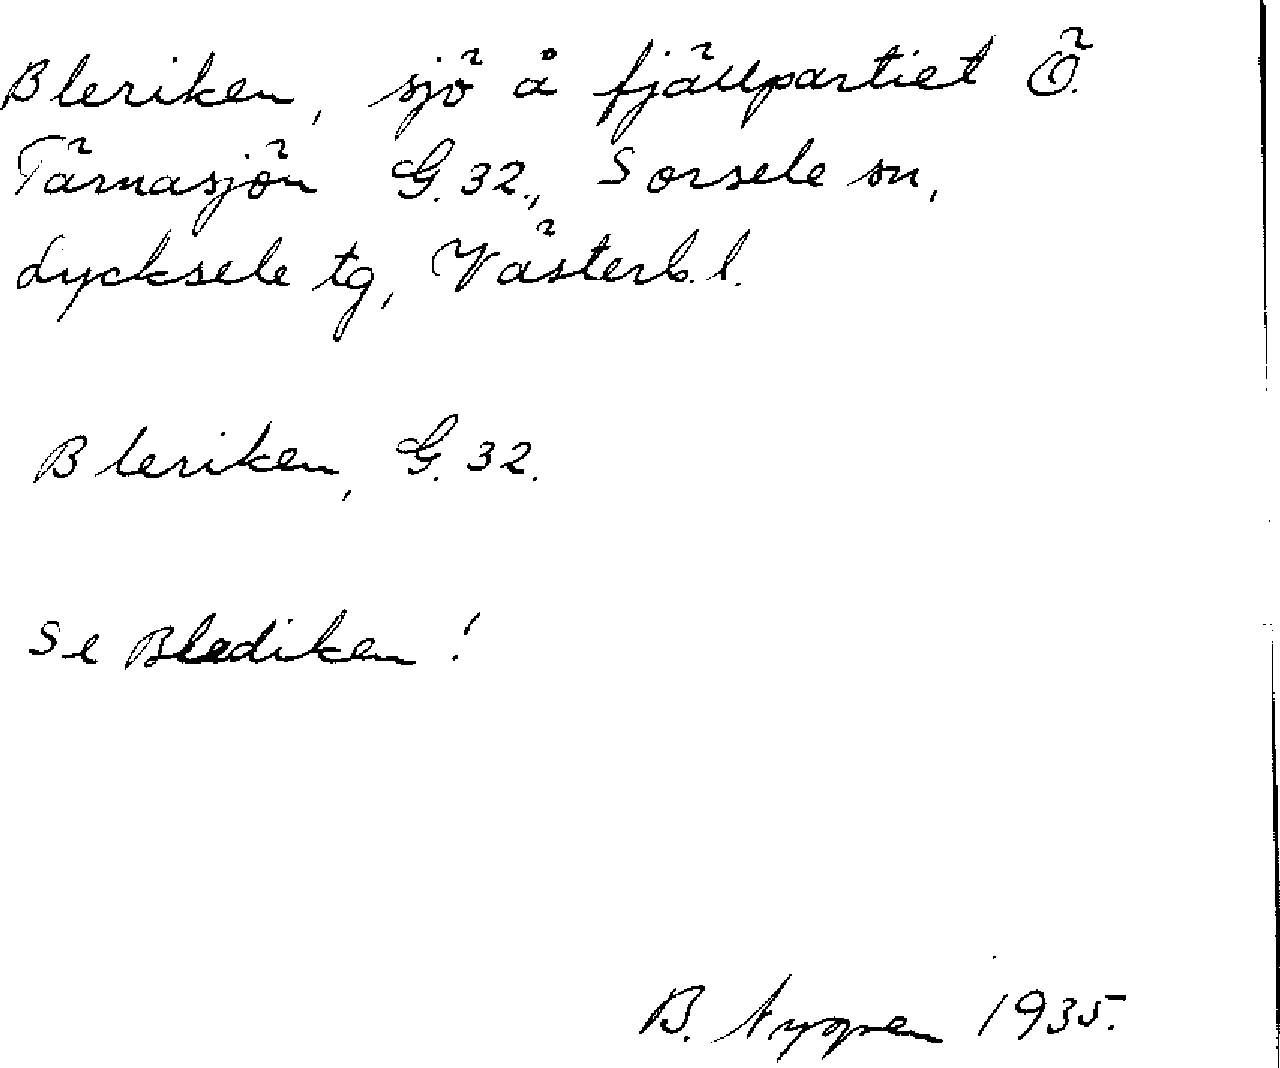 Bleriken, sjö å fjällpartiet Ö.
Tärnasjön G. 32., Sorsele sn,
Lycksele tg, Västerb. l.
Bleriken, G. 32.
Se Blediken!
B. 1935.